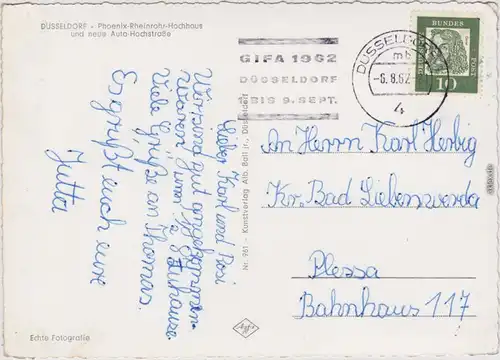 DÜSSELDORF - Phoenix-Rheinrohr-Hochhaus
und neue Auto-Hochstraße
Lieber Karl und Rosi
Wir sind gut angekommen.
Waren zum ½ 8 Zuhause
Viele Grüße an Thomas.
Es grüßt euch eure
Jutta
Echte Fotografie
Nr. 961 - Kunstverlag Alb. Batl jr., Düsseldorf
Agfa
GIFA 1962
DÜSSELDORF
BIS 9. SEPT.
DÜSSELDORF
mb
-6.8.62-
4
BUNDES
POST
10
An Herrn Karl Herbig
Kr. Bad Liebenwerda
Plessa
Bahnhaus 117